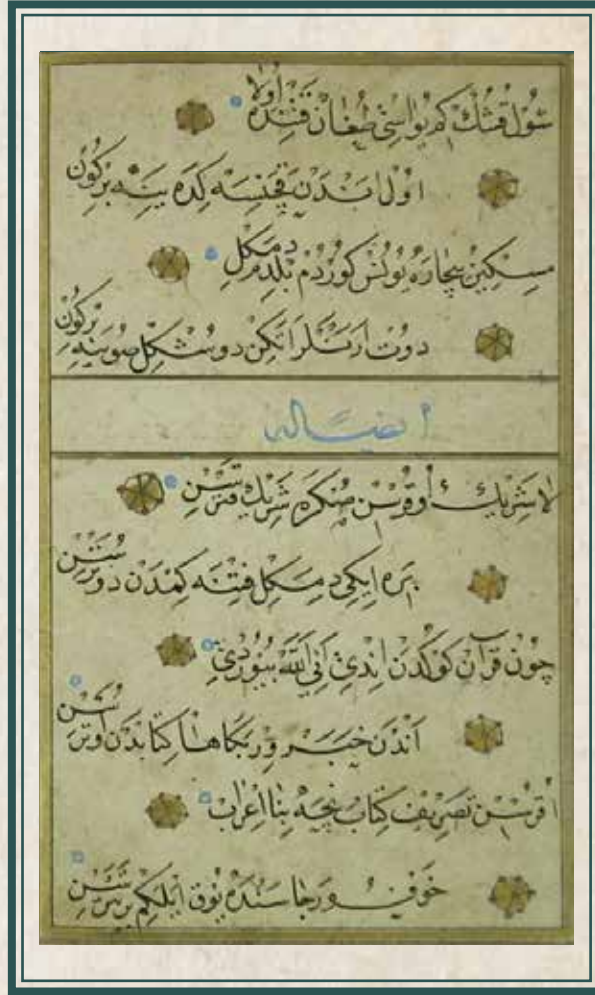 شول قشك كم يواسي طغان قنده اولا
اول ابدن قچنسه كده ينه بركون
مسكين بيچاره يونس كوردم بلدم دمكل
دوت ارنلر اتكن دوشكل صوينه بركون
ايضا له
لا شريك اوقرسن صكره شريك قترسن
بره ايكي دمكل فتنه كمدن دوترسن
چون قرآن كوكدن اندي اني الله بيوردي
اندن خبر وركاها كتابدن اوترسن
اقرسن تصريف كتاب نيجه بنا اعراب
خوف و رجا سنده يوق ايله كم